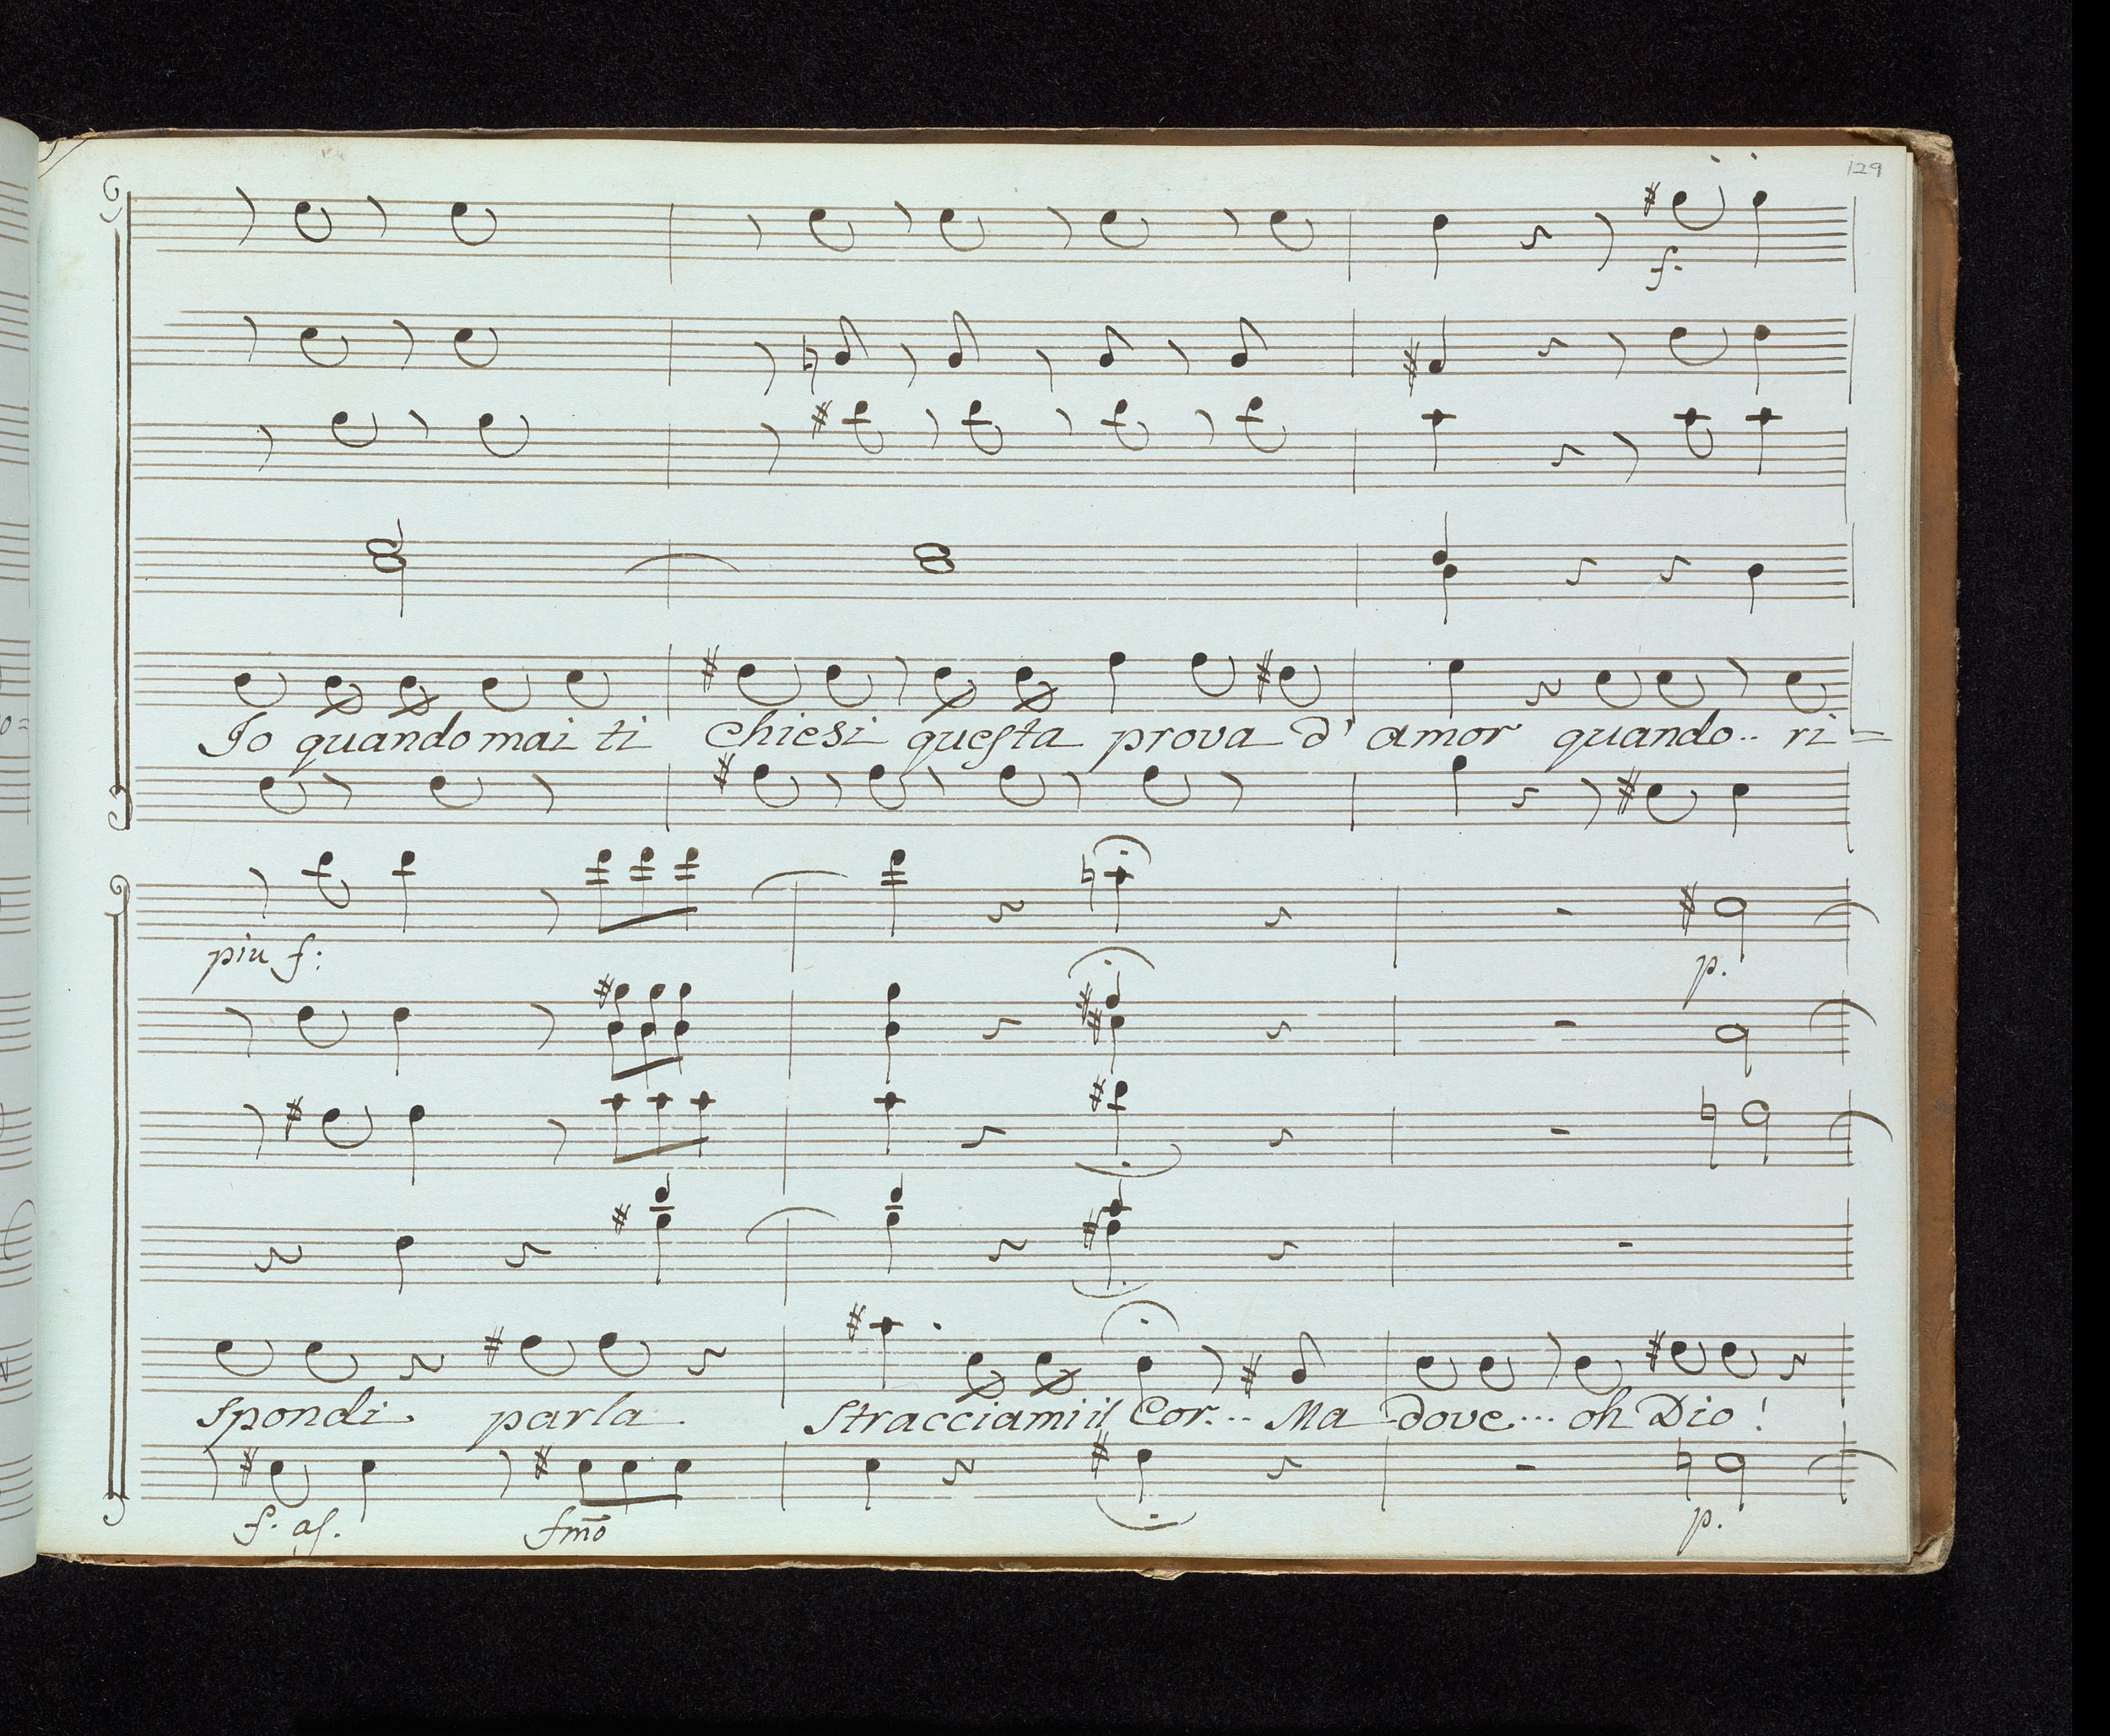 129
f.
Io quando mai ti chiesi questa prova d' amor quando.. ri=
piu f:
p.
spondi parla stracciami il Cor... Ma dove... oh Dio!
f. as. fmo p.